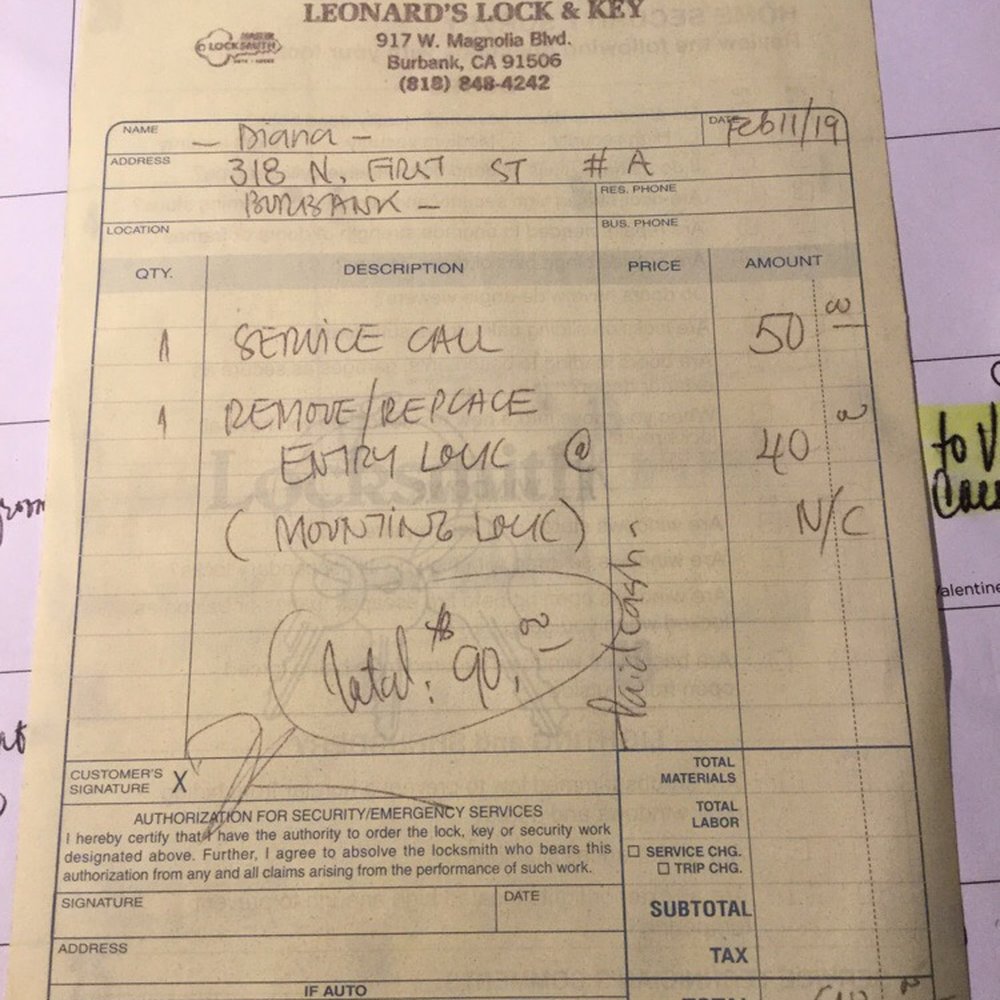 LEONARD'S LOCK & KEY
MASTER
LOCKSMITH
917 W. Magnolia Blvd.
Burbank, CA 91506
(818) 848-4242
NAME - Diana - DATE Feb 11/19
ADDRESS 318 N. FIRST ST # A
BURBANK - RES. PHONE
LOCATION BUS. PHONE
QTY. DESCRIPTION PRICE AMOUNT
1 SERVICE CALL 50 00
1 REMOVE/REPLACE
ENTRY LOCK @ 40 00
(MOUNTING LOCK) N/C
Total: $ 90.00
Paid cash.
CUSTOMER'S
SIGNATURE X
TOTAL
MATERIALS
AUTHORIZATION FOR SECURITY/EMERGENCY SERVICES
I hereby certify that I have the authority to order the lock, key or security work
designated above. Further, I agree to absolve the locksmith who bears this
authorization from any and all claims arising from the performance of such work.
TOTAL
LABOR
SERVICE CHG.
TRIP CHG.
SIGNATURE DATE
SUBTOTAL
ADDRESS
TAX
IF AUTO
TOTAL
to V